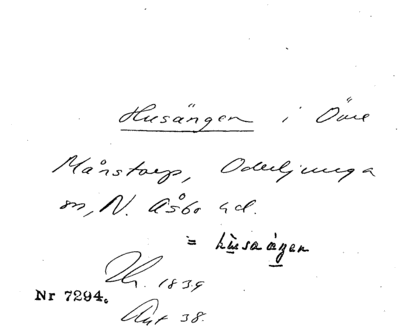 Husängen i Övre
Månstorp, Oderljunga
sn, N. Åsbo hd.
= husaängen
1839
Nr 7294.
Ant 38.